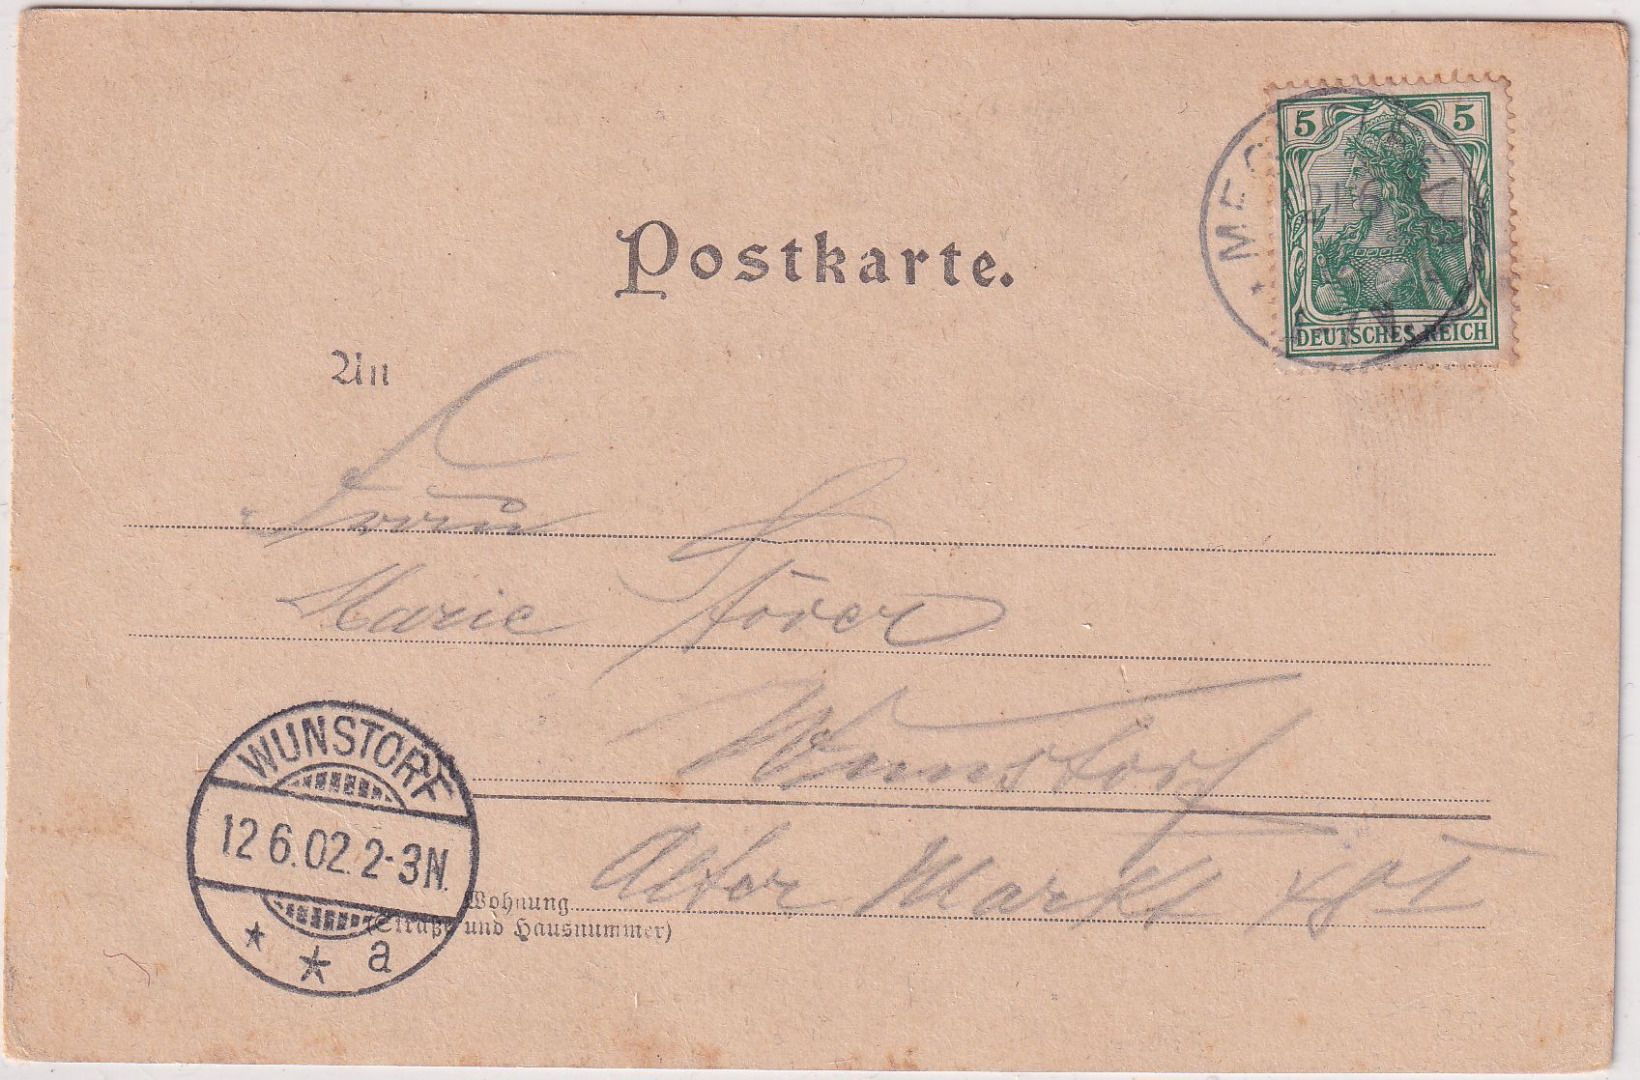 5 5
DEUTSCHES REICH
Postkarte.
An
Frau
Marie
Wunstorf
Alter Markt
Wohnung
(Straße und Hausnummer)
WUNSTORF
12 6.02. 2-3N.
a